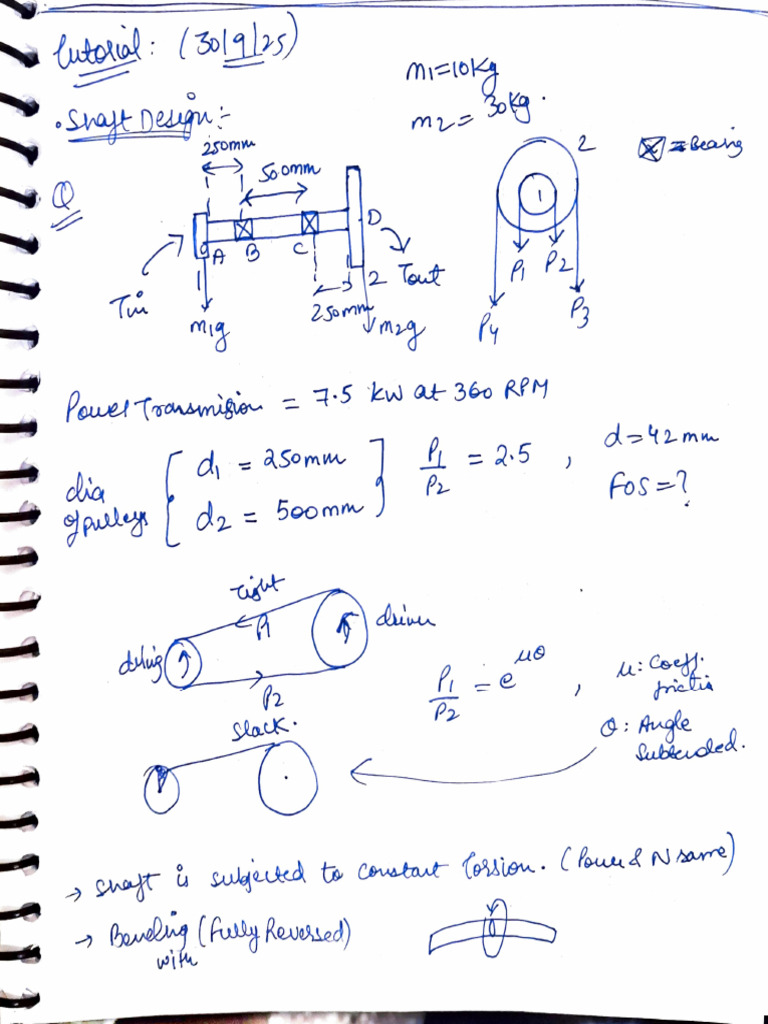 Tutorial: (30/9/25)
m1=10kg
m2= 30kg.
• Shaft Design:-
250mm
500mm
2
= Bearing
Q
1
D
A B C
P1 P2
1
2 Tout
Tin
250mm
m1g
m2g
P4
P3
Power Transmission = 7.5 kW at 360 RPM
dia of pulleys
d1 = 250mm
d2 = 500mm
P1/P2 = 2.5 ,
d=42mm
FOS=?
Tight
P1
driven
driving
P2
Slack.
P1/P2 = e^μθ ,
μ: Coeff. frictio
θ: Angle Subtended.
→ Shaft is subjected to constant Torsion. (Power & N same)
→ Bending (Fully Reversed)
with